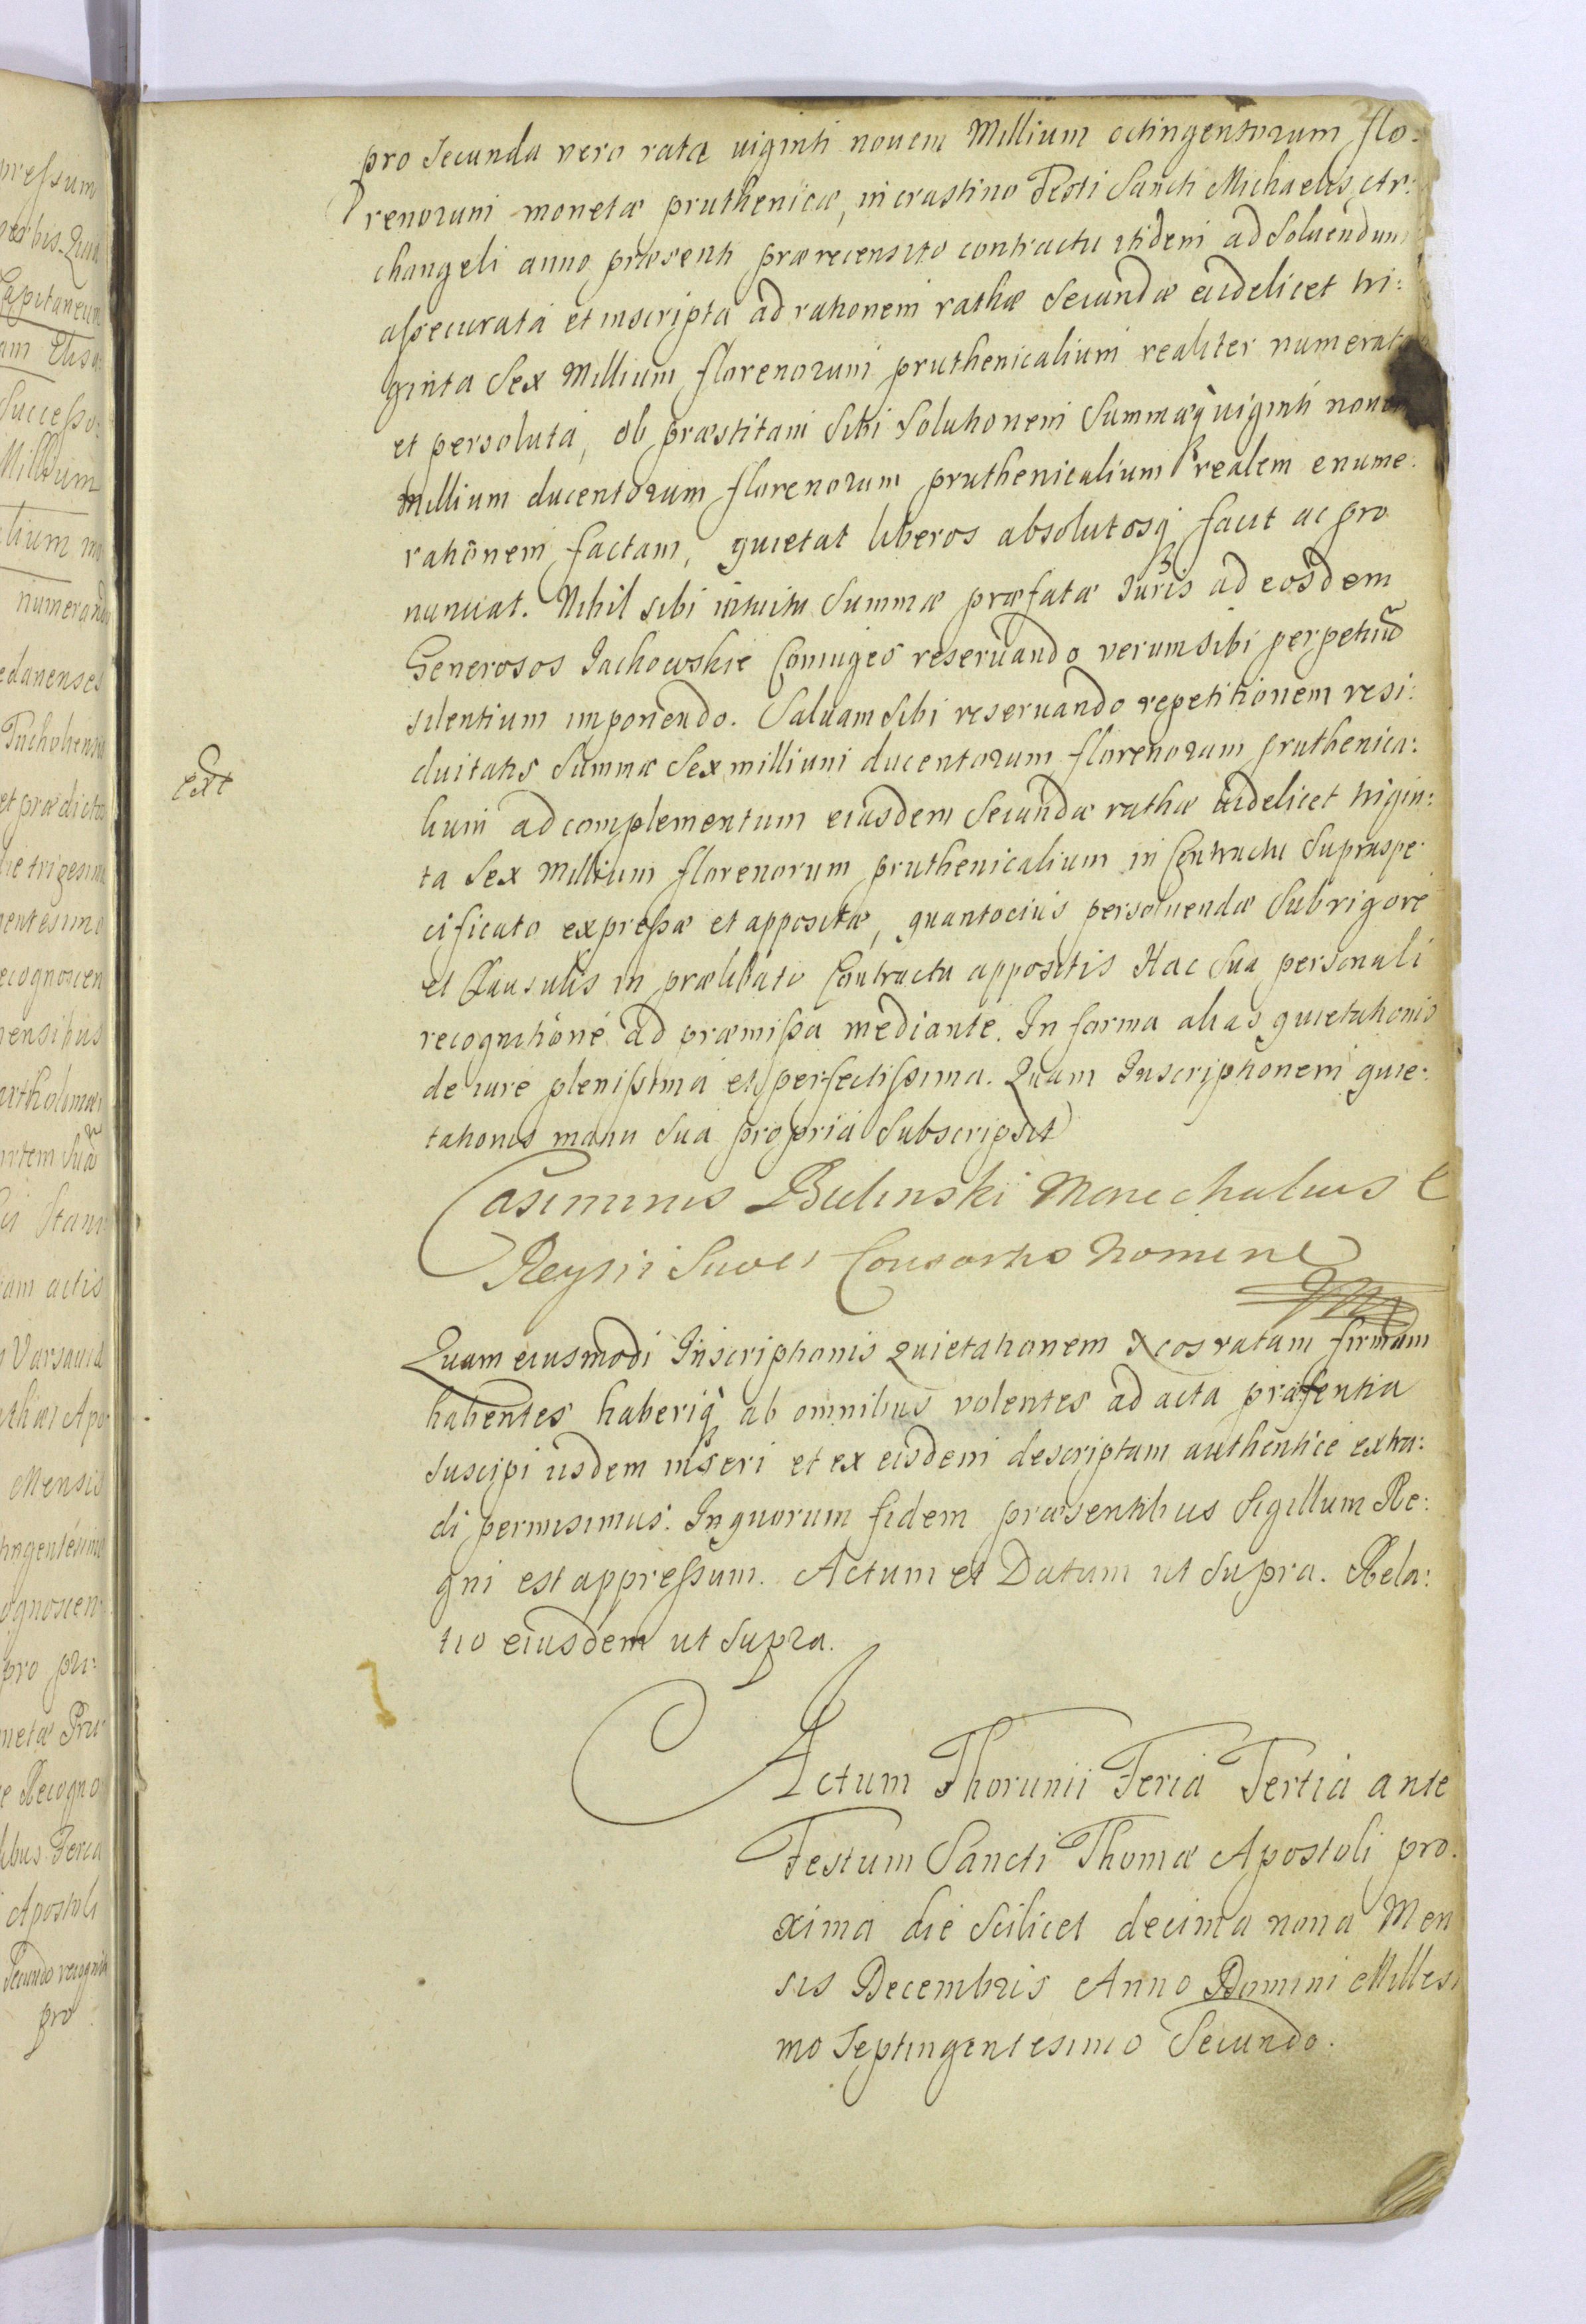 pro Secunda vero rata uiginti nouem Millium octingentorum flo:
renorum monetæ pruthenicæ, in crastino Festi Sancti Michaelis Ar:
changeli anno præsenti prærecensito contractu itidem ad Soluendum
assecurata et inscripta ad rationem rathæ Secundæ uidelicet tri:
ginta Sex Millium florenorum pruthenicalium realiter numerata
et persoluta, ob præstitam Sibi Solutionem Summæq̀ uiginti nouem
millium ducentorum florenorum pruthenicalium realem enume:
rationem factam, quietat liberos absolutosq̀ facit ac pro
nunciat. Nihil sibi intuitu Summæ præfatæ Iuris ad eosdem
Generosos Jachowskie Coniuges reseruando verum sibi perpetuũ
silentium imponendo. Saluam Sibi reseruando repetitionem resi:
duitatis Summæ Sex milliuni ducentorum florenorum pruthenica:
lium ad complementum eiusdem Secundæ rathæ uidelicet trigin:
ta Sex Millium florenorum pruthenicalium in Contractu Supraspe:
cificato expressæ et appositæ, quantocius persoluendæ Sub rigore
ext
et Clausulis in prælibato Contractu appositis Hac Sua personali
recognitione ad præmissa mediante. In forma alias quietationis
de iure plenissima et perfectissima. Quam Inscriptionem quie:
tationis manu Sua propria Subscripsit
Casimirus Bielinski Marechalus
Regni Suae Consortis Nomine
Quam eiusmodi Inscriptionis Quietationem Nos ratam firmam
habentes haberiq̀ ab omnibus volentes ad acta præsentia
suscipi iisdem inseri et ex eisdem descriptam authentice extra:
di permisimus. In quorum fidem præsentibus Sigillum Re:
gni est appressum. Actum et Datum ut Supra. Rela:
tio eiusdem ut Supra.
Actum Thorunii Feria Tertia ante
Festum Sancti Thomæ Apostoli pro
xima die Scilicet decima nona Men
sis Decembris Anno Domini Millesi
mo Septingentesimo Secundo.